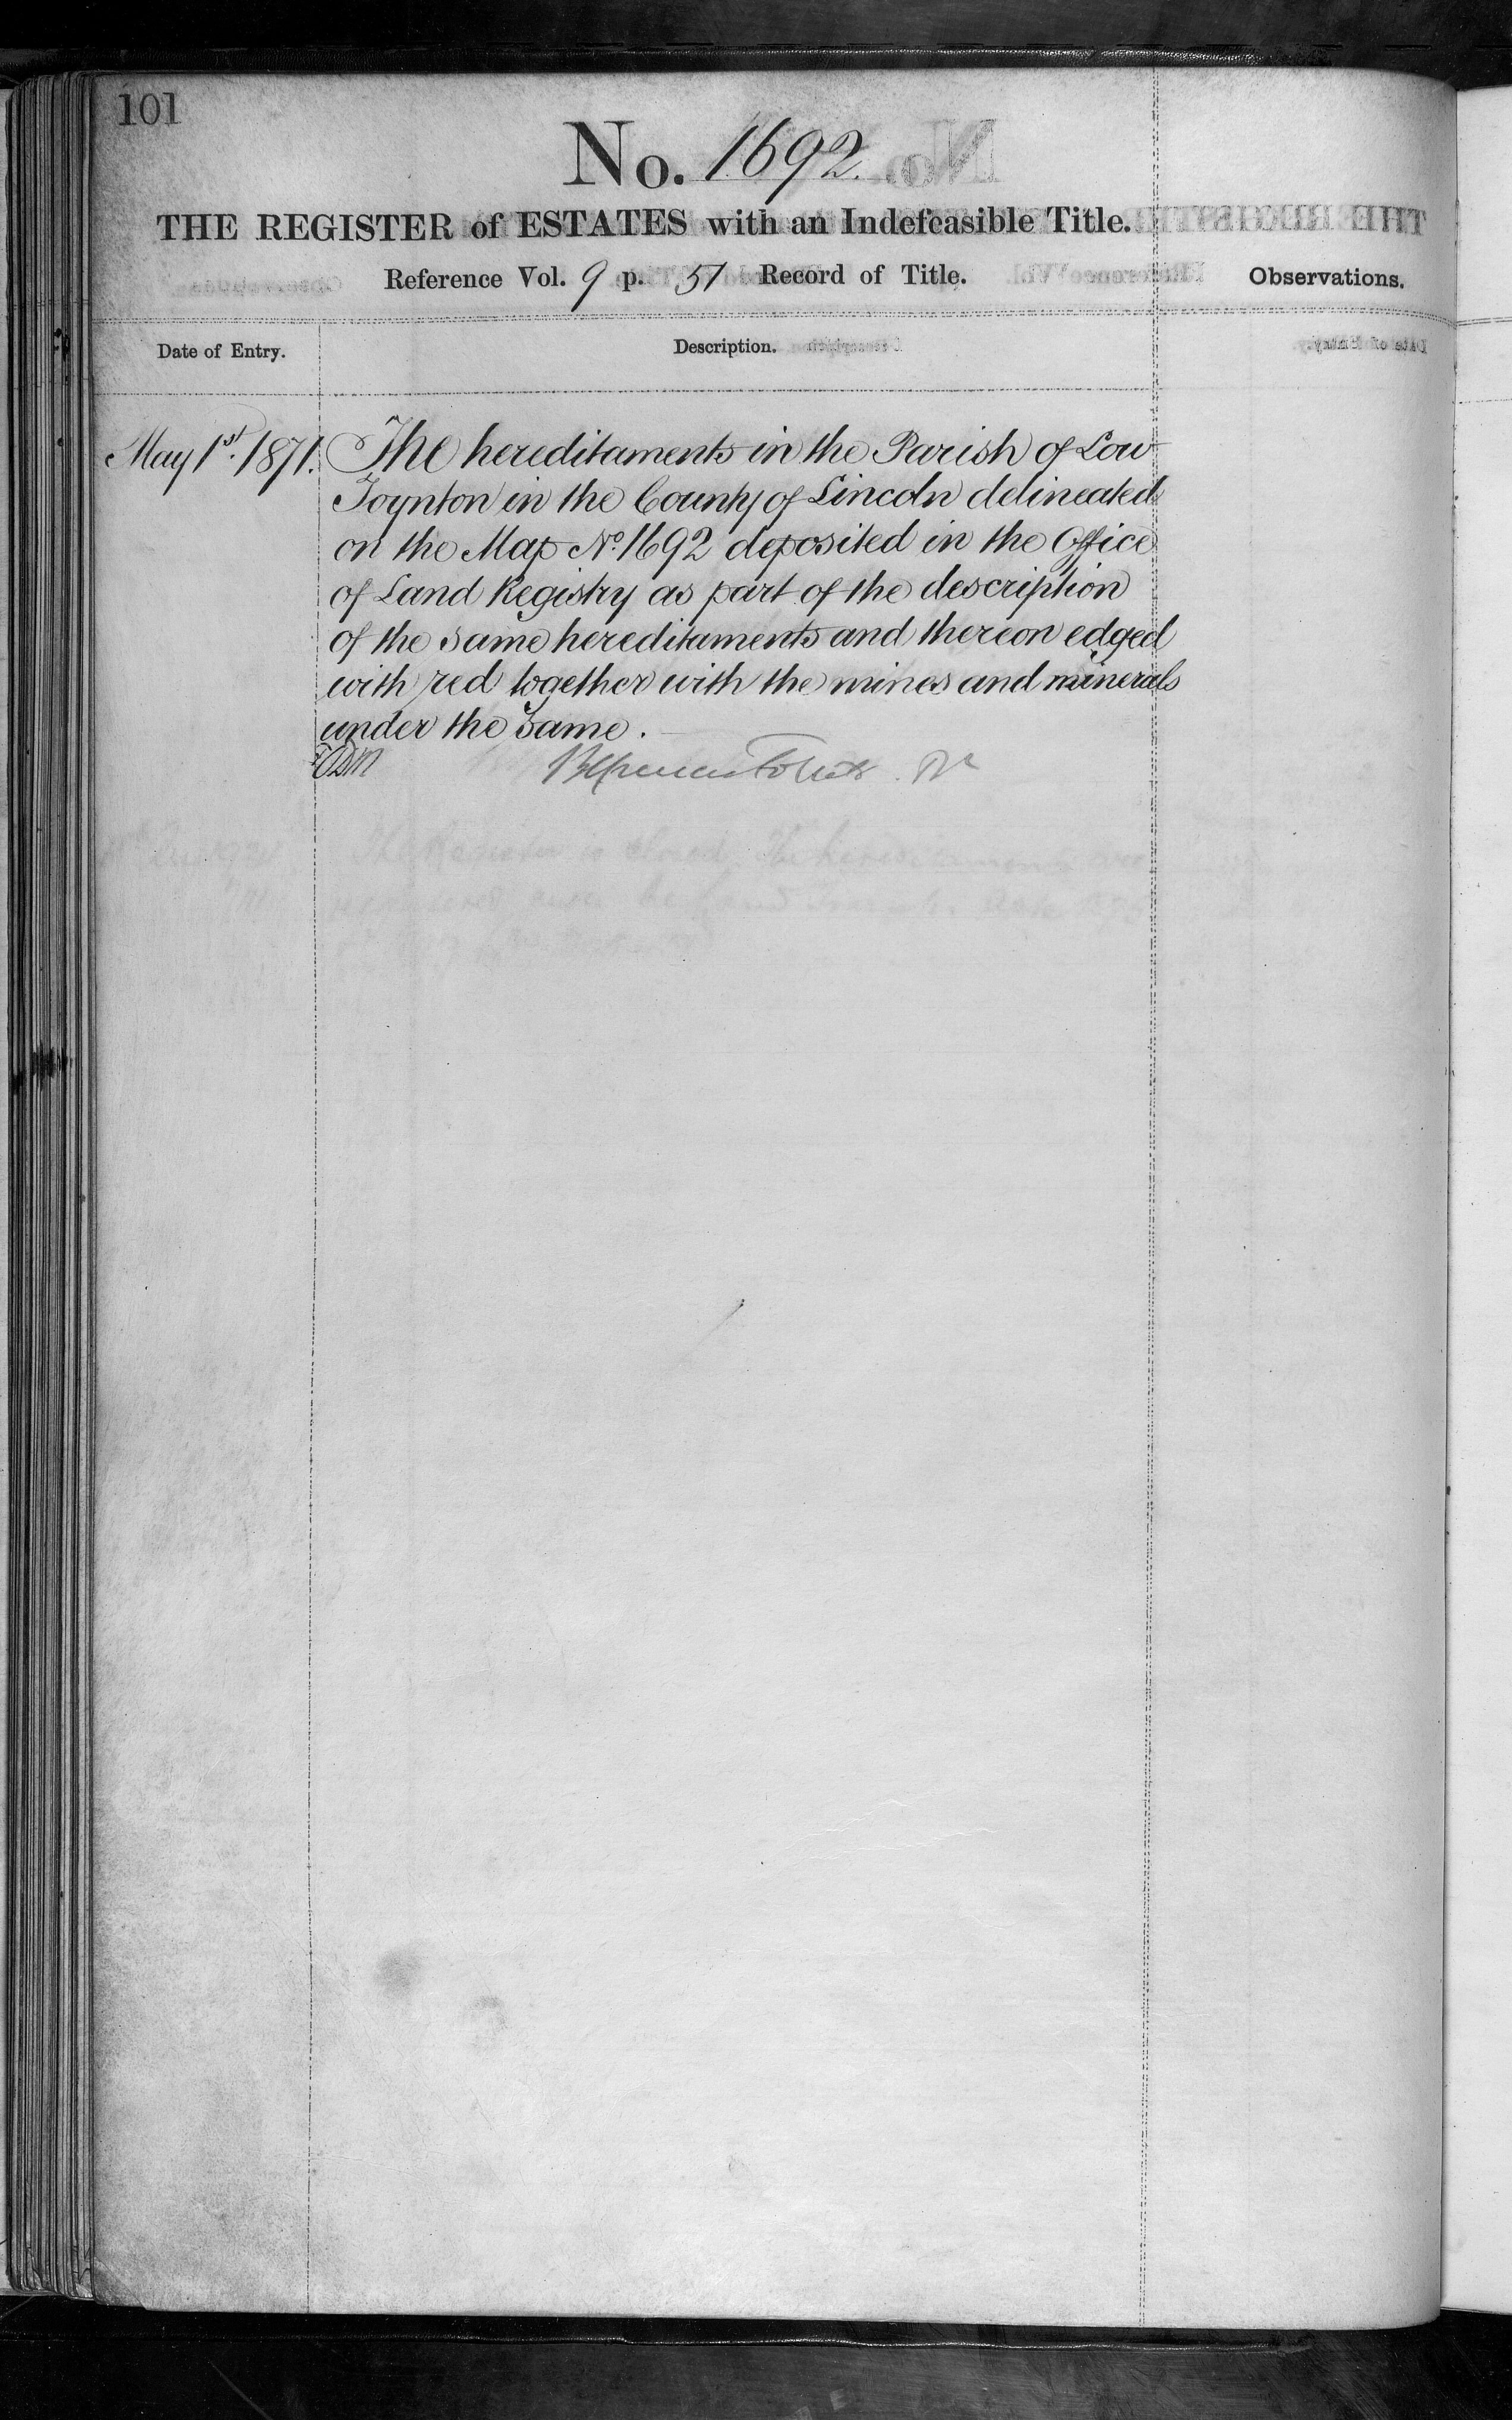 101
No. 1692.
THE REGISTER of ESTATES with an Indefeasible Title.
Reference Vol. 9 p. 51 Record of Title.
Observations.
Date of Entry.
Description.
May 1st. 1871. The hereditaments in the Parish of Low
Toynton in the County of Lincoln delineated
on the Map No. 1692 deposited in the Office
of Land Registry as part of the description
of the same hereditaments and thereon edged
with red together with the mines and minerals
under the same.
The Register is closed. The hereditaments are